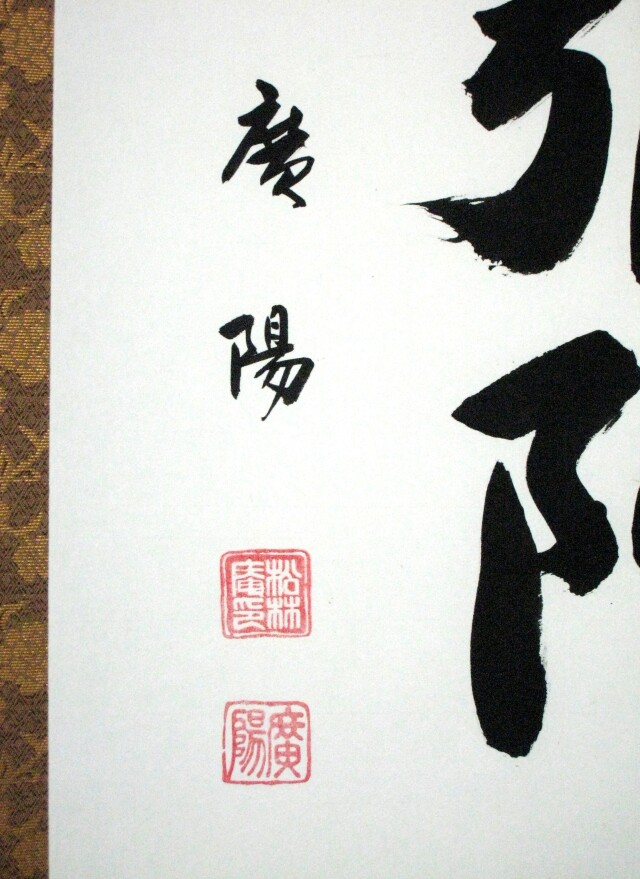 廣陽
松林庵印
廣陽